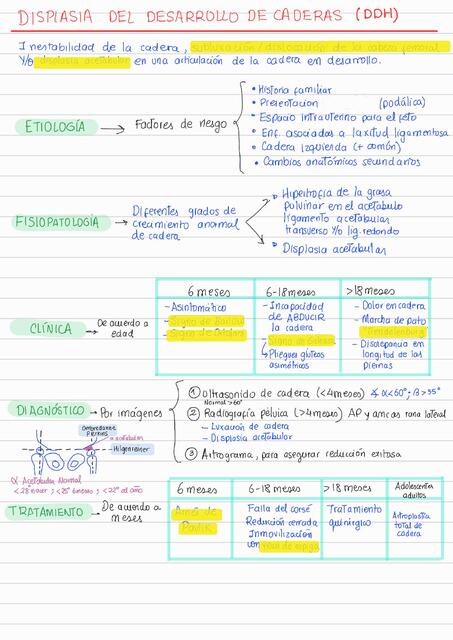 DISPLASIA DEL DESARROLLO DE CADERAS (DDH)
Inestabilidad de la cadera, subluxación/dislocación de la cabeza femoral
Y/o displasia acetabular en una articulación de la cadera en desarrollo.
ETIOLOGÍA → Factores de riesgo
• Historia familiar
• Presentacion (podálica)
• Espacio intrauterino para el feto
• Enf. asociadas a laxitud ligamentosa
• Cadera Izquierda (+ común)
• Cambios anatómicos secundarios
FISIOPATOLOGÍA → Diferentes grados de
crecimiento anormal
de cadera
• Hipertrofia de la grasa
pulvinar en el acetabulo
ligamento acetabular
transverso Y/o lig. redondo
• Displasia acetabular
CLÍNICA → De acuerdo a
edad
6 meses
- Asintomático
- Signo de Barlow
- Signo de Ortolani
6-18 meses
- Incapacidad
de ABDUCIR
la cadera
- Signo de Galeazzi
↳ Pliegues glúteos
asimétricos
>18 meses
- Dolor en cadera
- Marcha de pato
"Trendelenburg"
- Discrepancia en
longitud de las
piernas
DIAGNÓSTICO → Por imágenes
① Ultrasonido de cadera (<4 meses) ∡ α<60°; β>55°
Normal >60°
② Radiografía pélvica (>4 meses) AP y ancas rana lateral
- Luxación de cadera
- Displasia acetabular
③ Artrograma, para asegurar reducción exitosa
Ombredanne
Perkins
α acetabular
Hilgenreiner
α Acetabular Normal
<28° nacer; <25° 6 meses; <22° al año
TRATAMIENTO → De acuerdo a
meses
6 meses
Arnés de
Pavlik
6-18 meses
Falla del corsé
Reducción cerrada
Inmovilización
con yeso de espiga
>18 meses
Tratamiento
quirúrgico
Adolescentes
adultos
Artroplastia
total de
cadera